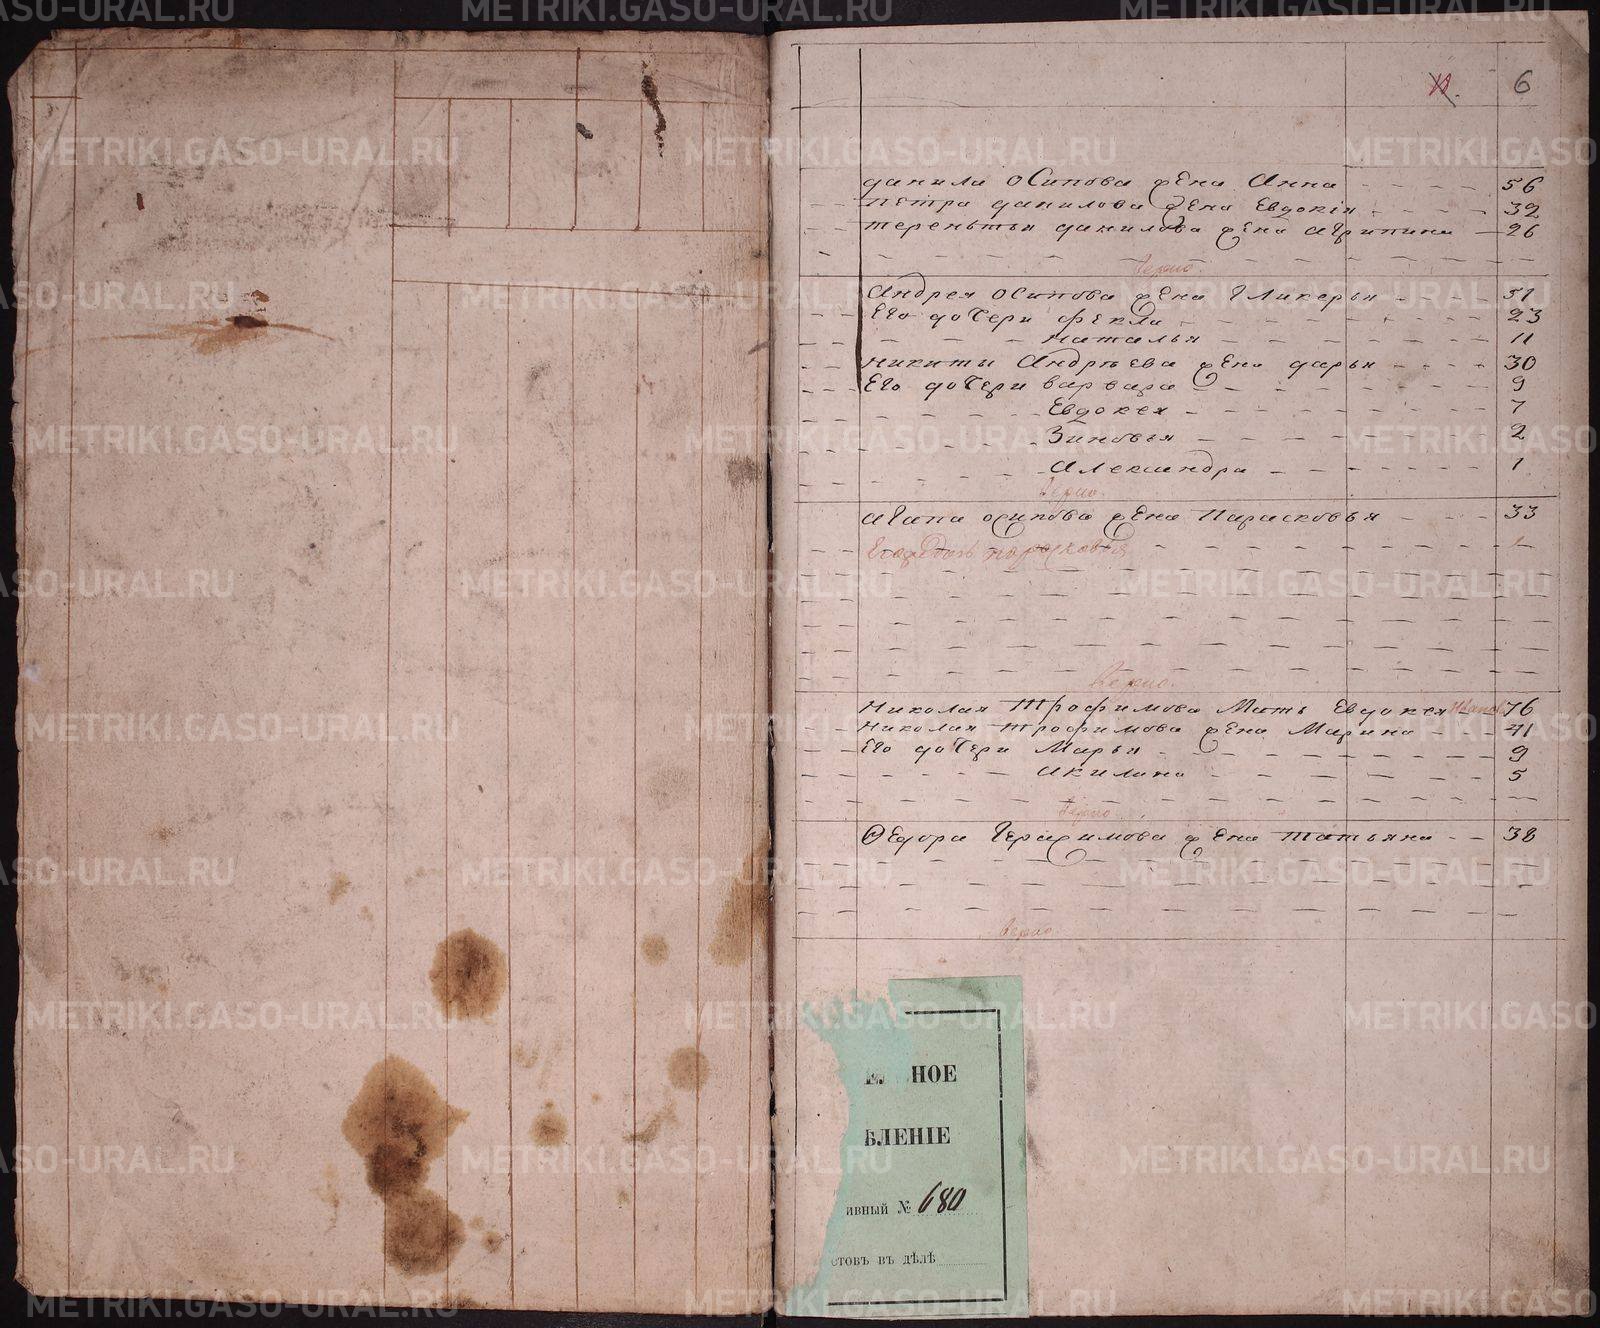 6
Данила Осипова жена Анна 56
Петра Данилова жена Евдокія 32
Терентья Данилова жена Агрипина 26
Верно.
Андрея Осипова жена Гликерья 51
Его дочери Фекла 23
Наталья 11
Никиты Андрѣева жена Дарья 30
Его дочери Варвара 9
Евдокея 7
Зиновья 2
Александра 1
Верно.
Агапа Осипова жена Парасковья 33
Верно.
Николая Трофимова Мать Евдокея Иванов 76
Николая Трофимова жена Марина 41
Его дочери Марья 9
Акилина 5
Верно.
Ѳедора Герасимова жена Татьяна 38
Верно.
НОЕ
ѢЛЕНІЕ
ивный № 680
стовъ въ дѣлѣ
METRIKI.GASO-URAL.RU